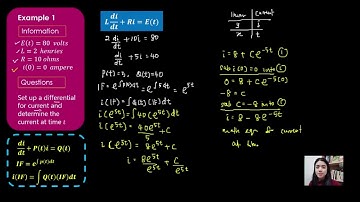 Example 1
Information
✓ E(t) = 80 volts
✓ L = 2 henries
✓ R = 10 ohms
✓ i(0) = 0 ampere
Questions
Set up a differential
for current and
determine the
current at time t
di/dt + P(t)i = Q(t)
IF = e^∫p(t)dt
i(IF) = ∫Q(t)(IF)dt
L di/dt + Ri = E(t)
2 di/dt + 10i = 80
di/dt + 5i = 40
P(t)=5, Q(t)=40
IF = e^∫5dt = e^5t
i(IF) = ∫Q(t)(IF)dt
i(e^5t) = ∫40(e^5t)dt
i(e^5t) = 40e^5t/5 + C
i(e^5t) = 8e^5t + C
i = 8e^5t/e^5t + C/e^5t
linear | current
y | i
x | t
i = 8 + Ce^-5t ①
sub i(0)=0 into ①
0 = 8 + Ce^-5(0)
-8 = C
sub C = -8 into ①
i = 8 - 8e^-5t
eqn for current
at time